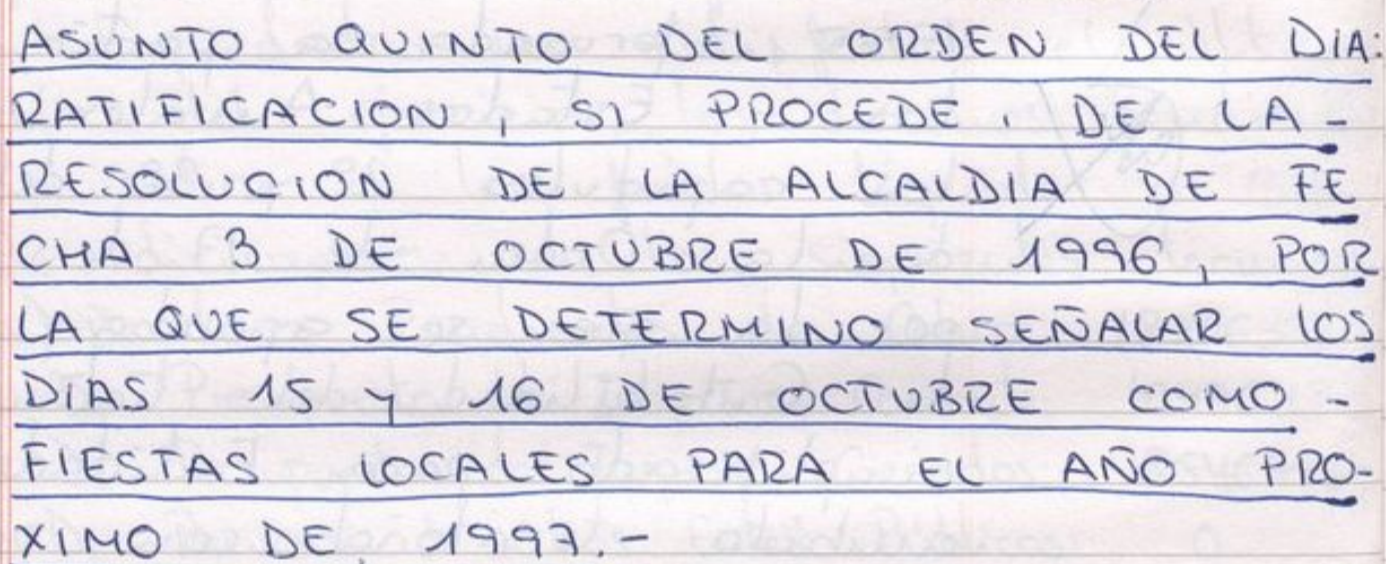 ASUNTO QUINTO DEL ORDEN DEL DIA:
RATIFICACION, SI PROCEDE, DE LA -
RESOLUCION DE LA ALCALDIA DE FE
CHA 3 DE OCTUBRE DE 1996, POR
LA QUE SE DETERMINO SEÑALAR LOS
DIAS 15 Y 16 DE OCTUBRE COMO -
FIESTAS LOCALES PARA EL AÑO PRO-
XIMO DE, 1997.-